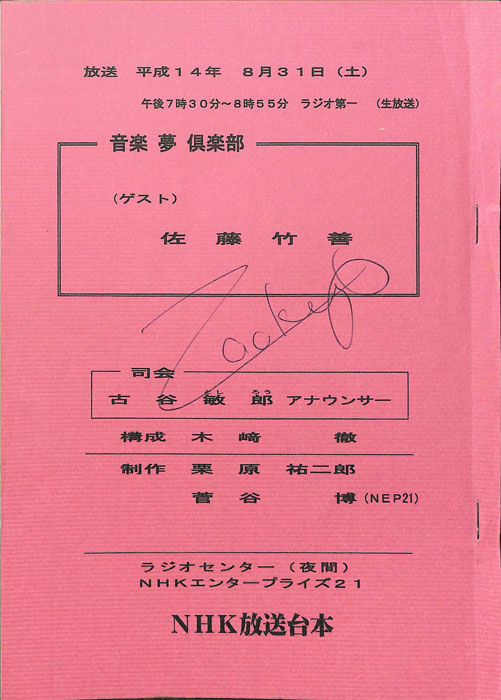 放送 平成14年 8月31日(土)
午後7時30分~8時55分 ラジオ第一 (生放送)
音楽 夢 倶楽部
(ゲスト)
佐藤竹善
司会
とし ろう
古谷敏郎 アナウンサー
構成 木﨑 徹
制作 栗原 祐二郎
菅谷 博(NEP21)
ラジオセンター(夜間)
NHKエンタープライズ21
NHK放送台本